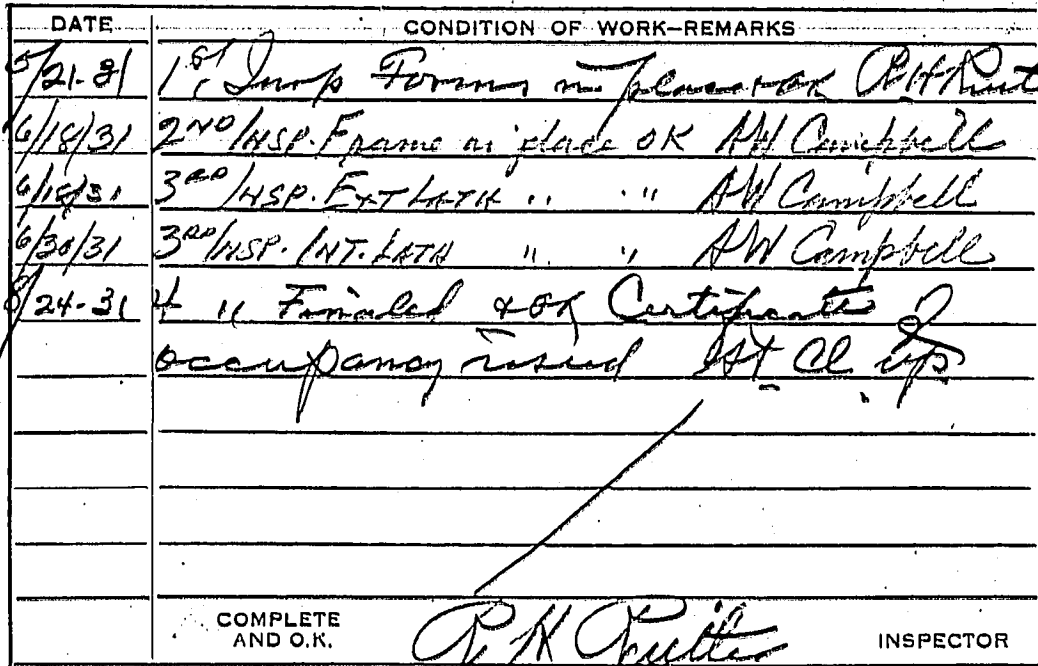 DATE CONDITION OF WORK—REMARKS
5/21-31 1st Insp Forms in place ok R H
6/18/31 2ND INSP. Frame in place OK AW Campbell
6/18/31 3RD INSP. EXT LATH " " AW Campbell
6/30/31 3RD INSP. INT. LATH " " AW Campbell
8/24-31 4 " Finaled & OK Certificate of
occupancy issued 1st Cl up
COMPLETE
AND O.K. R H INSPECTOR